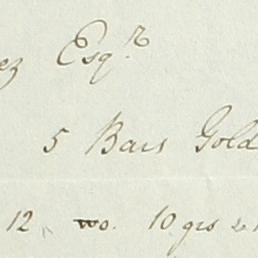 ez Esqr.
5 Bars Gold
12 wo. 10 grs